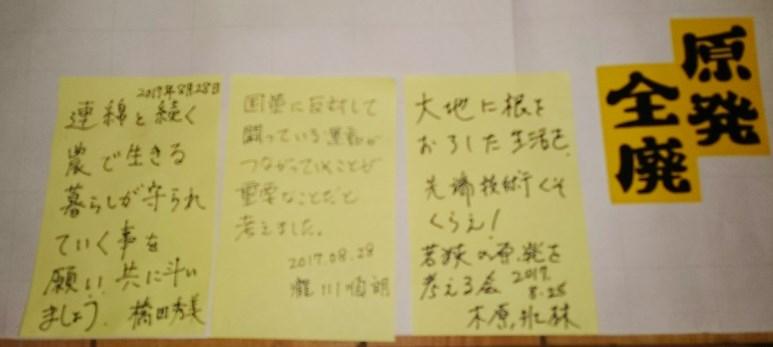 2017年8月28日
連綿と続く
農で生きる
暮らしが守られ
ていく事を
願い、共に斗い
ましょう。橋田秀美
国策に反対して
闘っている運動が
つながっていくことが
重要なことだと
考えました。
2017.08.28
瀧川順朗
大地に根を
おろした生活を、
先端技術くそ
くらえ!
若狭の原発を
考える会 2017.
8.28
木原, 林
原発
全廃